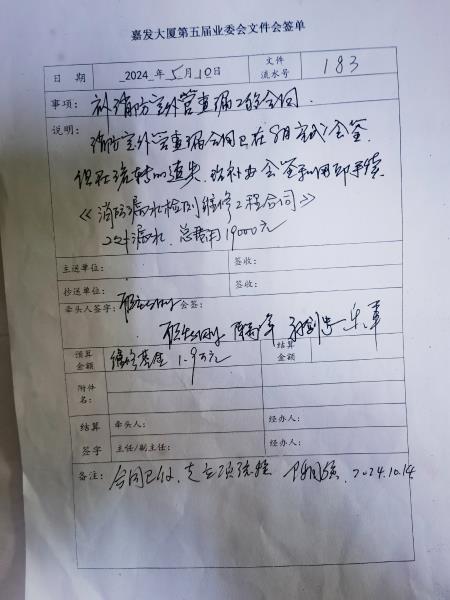 嘉发大厦第五届业委会文件会签单
日 期 2024 年 5月10日 文件流水号 183
事项: 补消防室外管查漏工的合同.
说明: 消防室外管查漏合同已在8月完成会签
但在流转时遗失, 故补办会签和用印手续
《消防漏水检测维修工程合同》
2处漏水. 总费用19000元
主送单位: 签收:
抄送单位: 签收:
牵头人签字: 会签:
预算金额 维修基金 1.9万元 结算金额
附件名:
结算 牵头人: 经办人:
签字 主任/副主任: 经办人:
备注: 合同已付, 走立项流程 2024.10.14